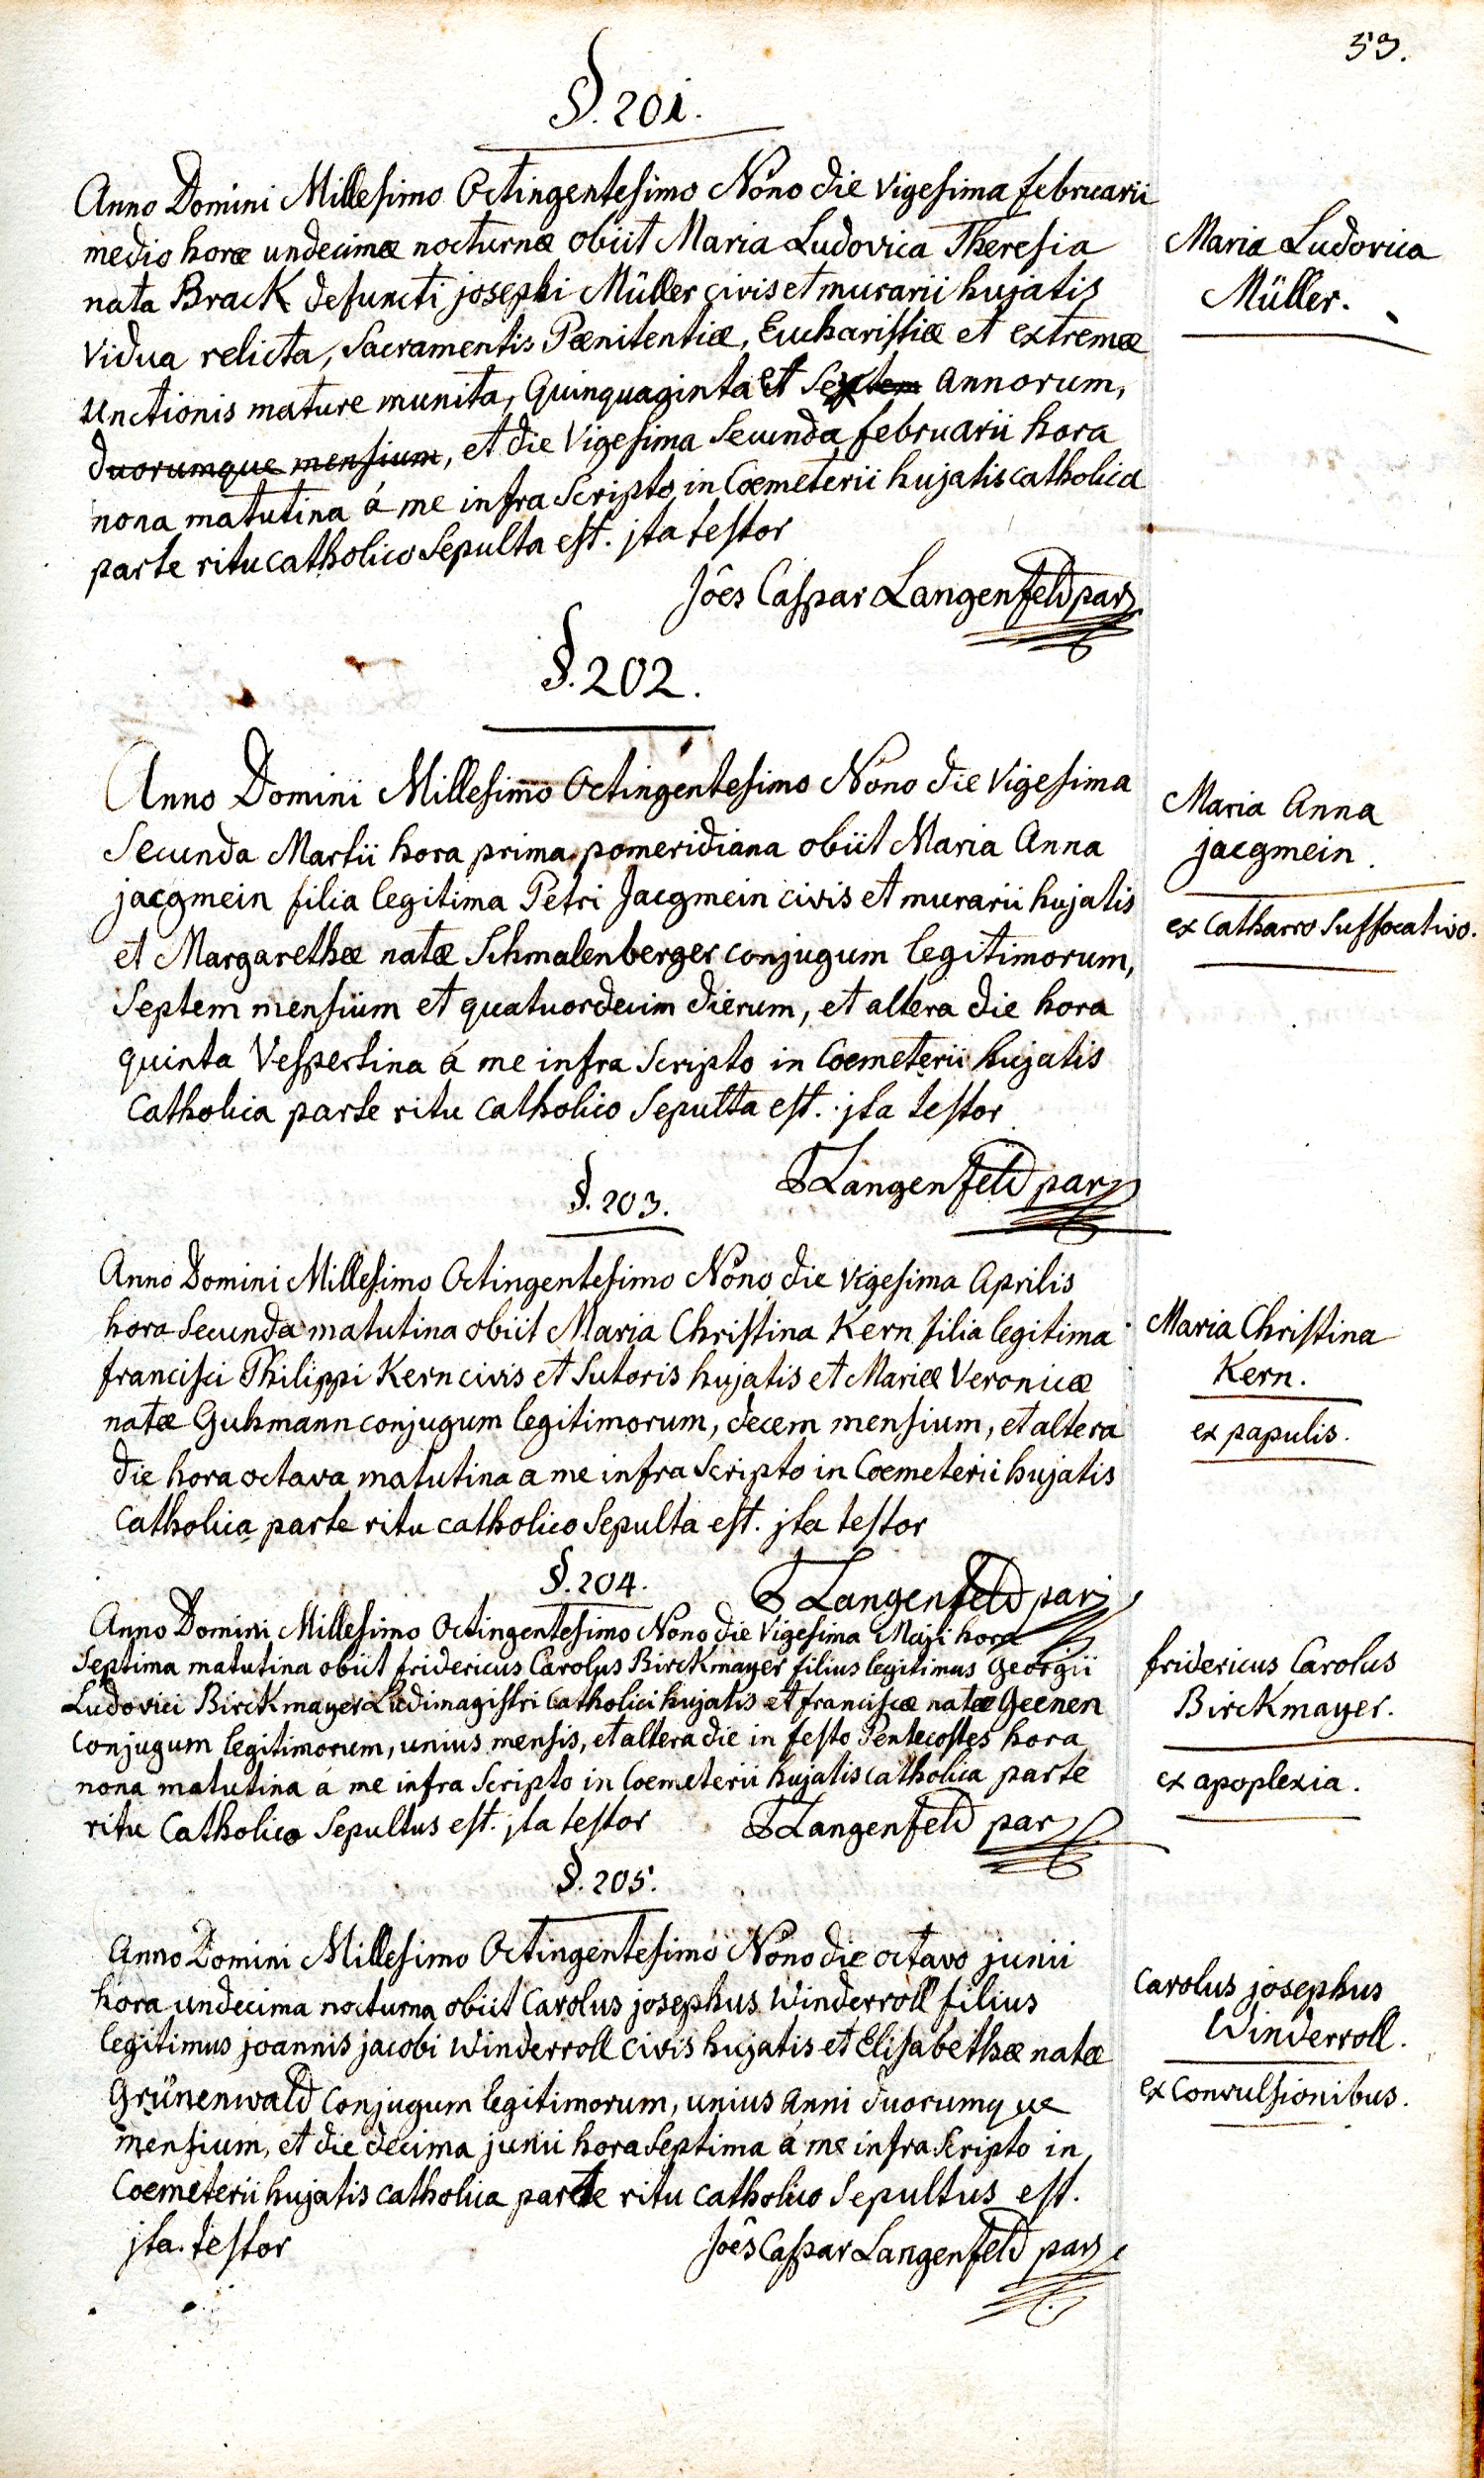 53.
§. 201.
Anno Domini Millesimo Octingentesimo Nono die vigesima februarii
medio horæ undecimæ nocturnæ obiit Maria Ludovica Theresia
nata Brack defuncti josephi Müller civis et murarii hujatis
vidua relicta, Sacramentis Pœnitentiæ, Eucharistiæ et extremæ
unctionis mature munita, Quinquaginta et annorum,
duorumque mensium, et die vigesima Secunda februarii hora
nona matutina á me infra Scripto in Cœmeterii hujatis catholica
parte ritu catholico Sepulta est. jta testor
Jôes Caspar Langenfeld par
Maria Ludovica
Müller.
§. 202.
Anno Domini Millesimo Octingentesimo Nono die vigesima
Secunda Martii hora prima pomeridiana obiit Maria Anna
jacgmein filia legitima Petri Jacgmein civis et murarii hujatis
et Margarethæ natæ Schmalenberger conjugum legitimorum,
Septem mensium et quatuordecim dierum, et altera die hora
quinta Vespertina á me infra Scripto in Coemeterii hujatis
Catholica parte ritu catholico Sepulta est. jta testor
Langenfeld par
Maria Anna
jacgmein.
ex Catharro Suffocativo.
§. 203.
Anno Domini Millesimo Octingentesimo Nono die vigesima Aprilis
hora Secunda matutina obiit Maria Christina Kern filia legitima
francisci Philippi Kern civis et Sutoris hujatis et Mariæ Veronicæ
natæ Guhmann conjugum legitimorum, decem mensium, et altera
die hora octava matutina a me infra Scripto in Coemeterii hujatis
Catholica parte ritu catholico Sepulta est. jta testor
Langenfeld par
Maria Christina
Kern.
ex papulis.
§. 204.
Anno Domini Millesimo Octingentesimo Nono die Vigesima Maji hora
Septima matutina obiit fridericus Carolus Birckmayer filius legitimus Georgii
Ludovici Birckmayer Ludimagistri Catholici hujatis et franciscæ natæ Geenen
Conjugum legitimorum, unius mensis, et altera die in festo Pentecostes hora
nona matutina á me infra Scripto in Coemeterii hujatis catholica parte
ritu Catholico Sepultus est. jta testor
Langenfeld par
fridericus Carolus
Birckmayer.
ex apoplexia.
§. 205.
Anno Domini Millesimo Octingentesimo Nono die octavo junii
hora undecima nocturna obiit Carolus josephus Winderroll filius
legitimus joannis jacobi Winderroll civis hujatis et Elisabethæ natæ
Grünenwald Conjugum legitimorum, unius anni duorumque
mensium, et die decima junii hora Septima á me infra Scripto in
Coemeterii hujatis catholica parte ritu catholico Sepultus est.
jta testor
Jôes Caspar Langenfeld par
Carolus josephus
Winderroll.
ex Convulsionibus.